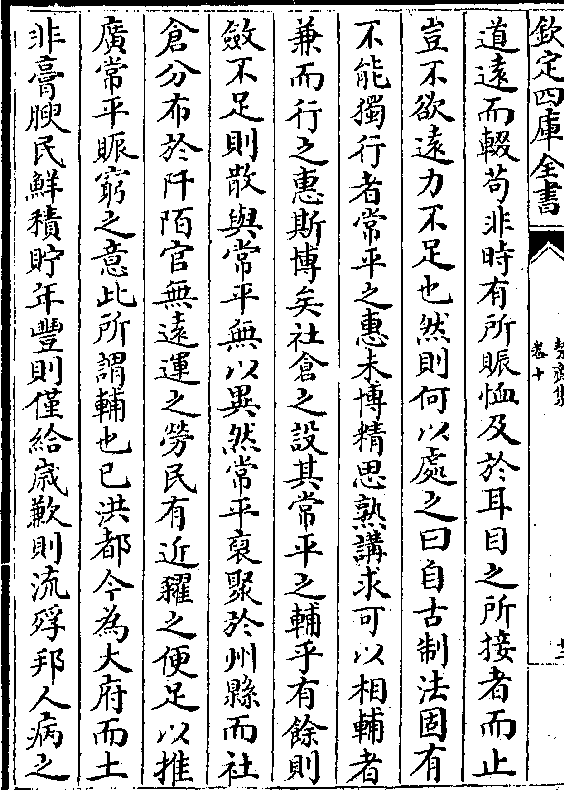 欽定四庫全書
絜齋集
卷十
道遠而輟苟非時有所賑恤及於耳目之所接者而止
豈不欲遠力不足也然則何以處之曰自古制法固有
不能獨行者常平之惠未博精思熟講求可以相輔者
兼而行之惠斯博矣社倉之設其常平之輔乎有餘則
斂不足則散與常平無以異然常平裒聚於州縣而社
倉分布於阡陌官無遠運之勞民有近糴之便足以推
廣常平賑窮之意此所謂輔也已洪都今為大府而土
非膏腴民鮮積貯年豐則僅給歲歉則流殍邦人病之